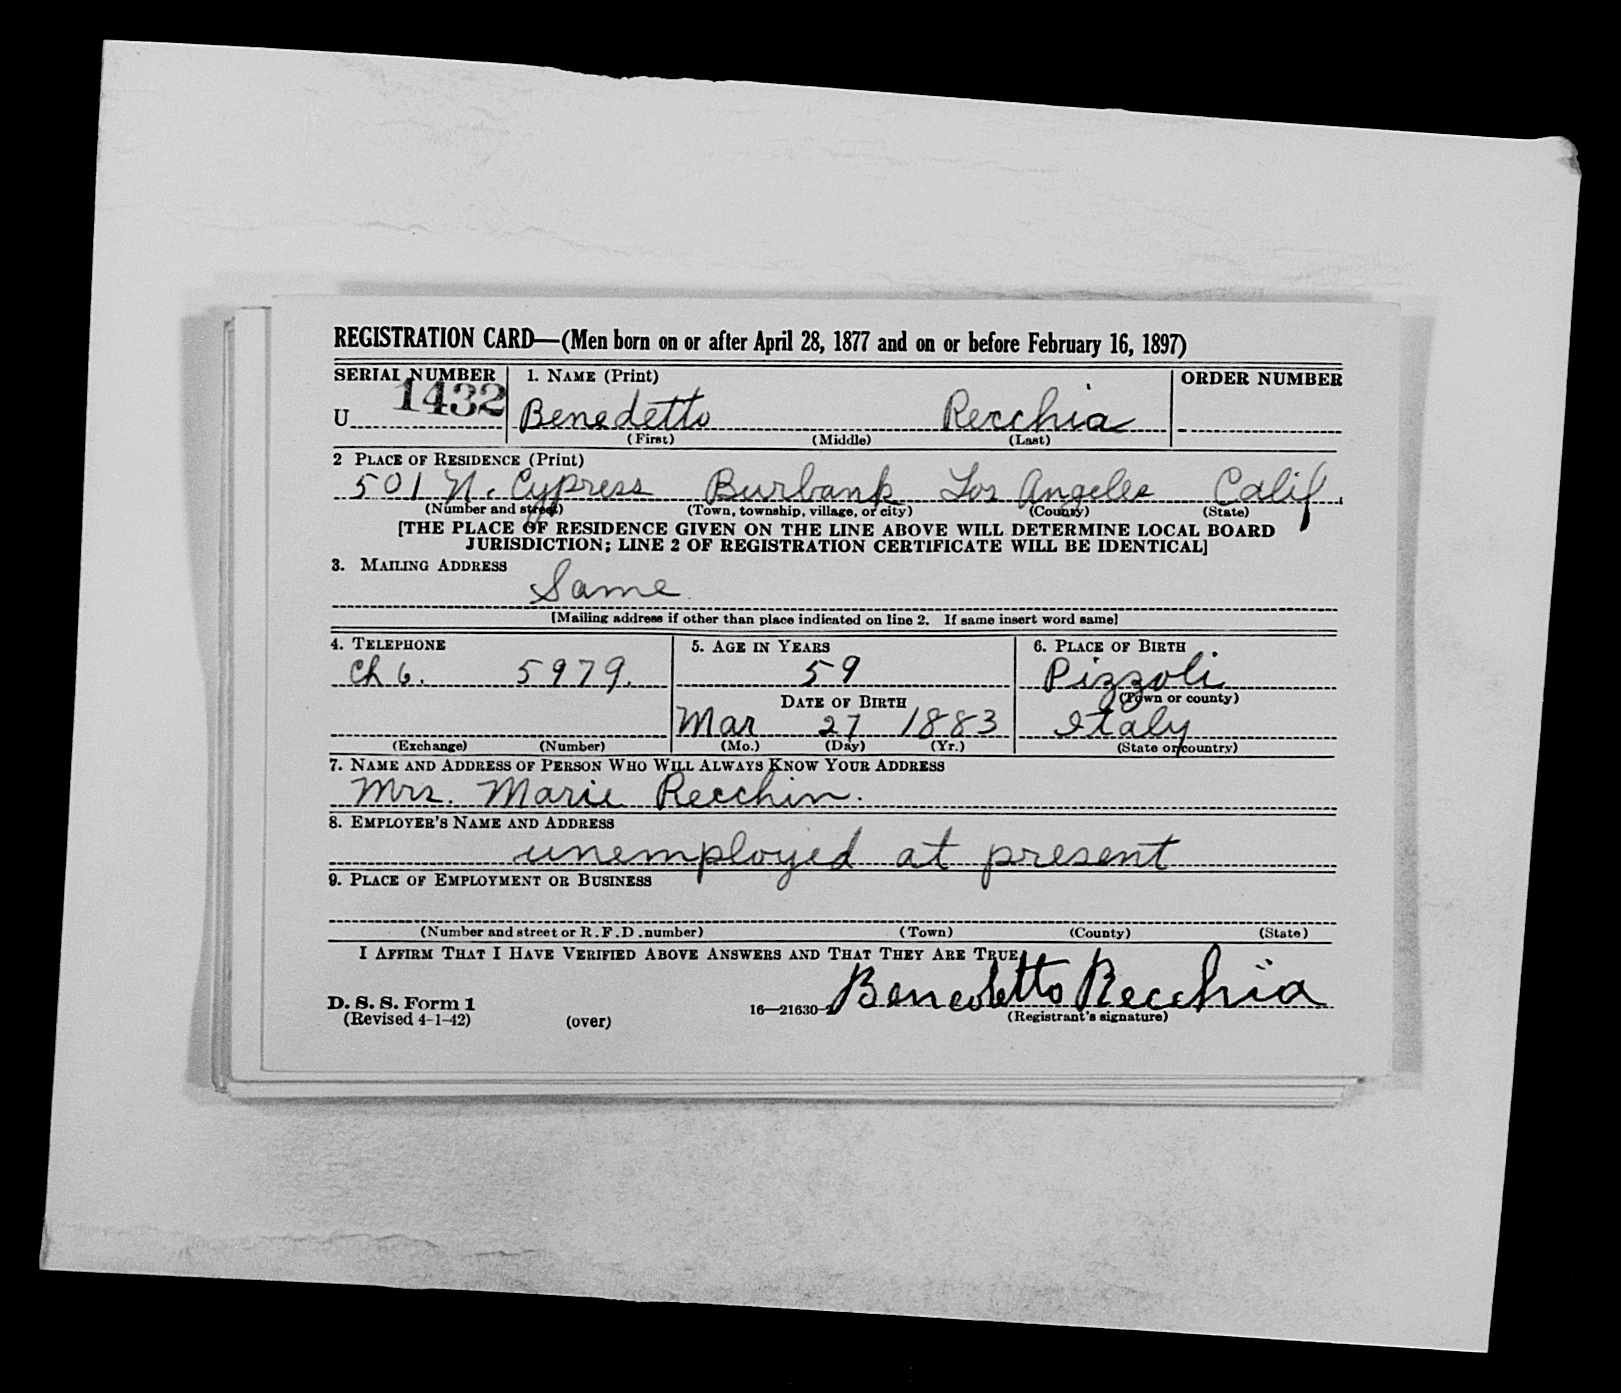 REGISTRATION CARD—(Men born on or after April 28, 1877 and on or before February 16, 1897)
SERIAL NUMBER 1. NAME (Print) ORDER NUMBER
U 1432 Benedetto Recchia
(First) (Middle) (Last)
2 PLACE OF RESIDENCE (Print)
501 N. Cypress Burbank Los Angeles Calif.
(Number and street) (Town, township, village, or city) (County) (State)
[THE PLACE OF RESIDENCE GIVEN ON THE LINE ABOVE WILL DETERMINE LOCAL BOARD
JURISDICTION; LINE 2 OF REGISTRATION CERTIFICATE WILL BE IDENTICAL]
3. MAILING ADDRESS
Same
[Mailing address if other than place indicated on line 2. If same insert word same]
4. TELEPHONE 5. AGE IN YEARS 6. PLACE OF BIRTH
Ch 6. 5979. 59 Pizzoli
DATE OF BIRTH (Town or county)
Mar 27 1883 Italy
(Exchange) (Number) (Mo.) (Day) (Yr.) (State or country)
7. NAME AND ADDRESS OF PERSON WHO WILL ALWAYS KNOW YOUR ADDRESS
Mrs. Marie Recchin.
8. EMPLOYER'S NAME AND ADDRESS
unemployed at present
9. PLACE OF EMPLOYMENT OR BUSINESS
(Number and street or R.F.D. number) (Town) (County) (State)
I AFFIRM THAT I HAVE VERIFIED ABOVE ANSWERS AND THAT THEY ARE TRUE.
D. S. S. Form 1 Benedetto Recchia
(Revised 4-1-42) (over) 16—21630-2 (Registrant's signature)